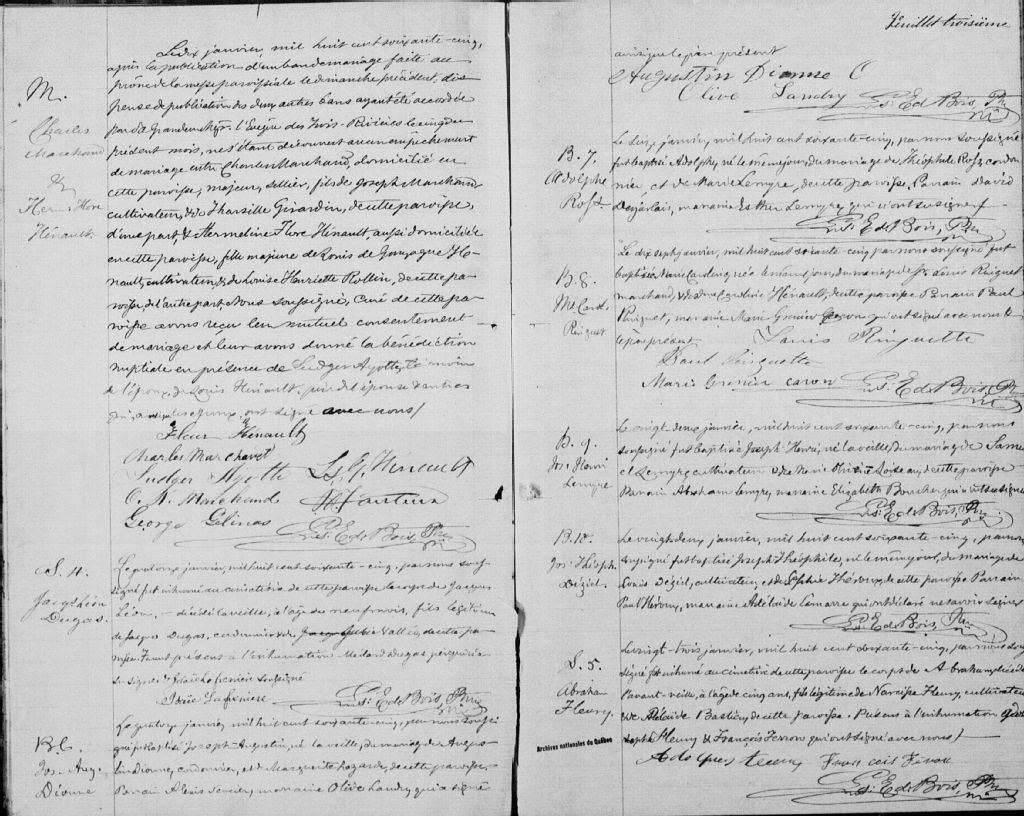 M.
Charles
Marchand
&
Hermeline Flore
Hénault
Le dix janvier, mil huit cent soixante-cinq,
après la publication d'un ban de mariage faite au
prône de la messe paroissiale le dimanche précédent, dis
pense de publication des deux autres bans ayant été accordée
par Sa Grandeur Mgr. l'Evêque des Trois-Rivières le cinq du
présent mois, ne s'étant découvert aucun empêchement
de mariage entre Charles Marchand, domicilié en
cette paroisse, majeur, sellier, fils de Joseph Marchand
cultivateur, & de Tharsille Girardin, de cette paroisse,
d'une part, & Hermeline Flore Hénault, aussi domiciliée
en cette paroisse, fille majeure de Louis de Gonzague Hé-
nault, cultivateur, & de Louise Henriette Rollin, de cette pa-
roisse, de l'autre part, Nous soussigné, Curé de cette pa-
roisse avons reçu leur mutuel consentement
de mariage et leur avons donné la bénédiction
nuptiale en présence de Ludger Ayotte, témoin
de l'époux, de Louis Hénault, père de l'épouse & autres
qui, les époux, ont signé avec nous
Fleur Hénault
Charles Marchand
Ludger Ayotte L. G. Hénault
O. N. Marchand
George Gélinas
Ls. Ed. Bois, Ptre
S. 4.
Jacqs Léon
Dugas.
Le quatorze janvier, mil huit cent soixante-cinq, par nous sous
signé fut inhumé au cimetière de cette paroisse le corps de Jacques
Léon, décédé la veille, à l'âge de neuf mois, fils légitime
de Jacques Dugas, cordonnier & de Vallée, de cette pa-
roisse. Furent présents à l'inhumation Médard Dugas
Lafrenière soussigné
Lafrenière
Ls. Ed. Bois, Ptre
B. 6.
Jos. Aug.
Dionne
Le quatorze janvier, mil huit cent soixante-cinq, par nous soussi
gné fut baptisé Joseph-Augustin, né la veille, du mariage d'Augus-
tin Dionne, cordonnier, et de Marguerite de cette paroisse,
Parrain Alexis marraine Olive Landry qui a signé
Feuillet troisième
ainsi que le père présent
Augustin Dionne
Olive Landry
Ls. Ed. Bois, Ptre
B. 7.
Adolphe
Ross
Le janvier, mil huit cent soixante-cinq, par nous soussigné
fut baptisé Adolphe, né le même jour, du mariage de Théophile Ross, cordon
nier, et de Marie Lemyre, de cette paroisse, Parrain David
Desjarlais, marraine Esther Lemyre, qui n'ont su signer
Ls. Ed. Bois, Ptre
B. 8.
Me Carol.
Ringuet
Le dix sept janvier, mil huit cent soixante-cinq par nous soussigné fut
baptisée Marie Caroline, née le même jour, du mariage de Louis Ringuet
marchand, & de Dme Caroline Hénault, de cette paroisse Parrain Paul
Ringuet, marraine Marie Grenier Caron qui ont signé avec nous &
le père présent.
Louis Ringuette
Paul Ringuette
Marie Grenier Caron
Ls. Ed. Bois, Ptre
B. 9.
Jos. Henri
Lemyre
Le vingt deux janvier, mil huit cent soixante-cinq, par nous
soussigné fut baptisé Joseph Henri, né la veille, du mariage de Samu
el Lemyre, cultivateur & de Loiseau, de cette paroisse
Parrain Abraham Lemyre, marraine Elizabeth Boucher qui n'ont su signer
Ls. Ed. Bois, Ptre
B. 10.
Jos. Théoph.
Déziel.
Le vingt deux janvier, mil huit cent soixante-cinq, par nous
soussigné fut baptisé Joseph Théophile, né le même jour, du mariage de
Louis Déziel, cultivateur, et de Sophie Héroux, de cette paroisse Parrain
Paul Héroux, marraine Adélaïde Lamarre qui ont déclaré ne savoir signer
Ls. Ed. Bois, Ptre
S. 5.
Abraham
Fleury.
Le vingt-trois janvier, mil huit cent soixante-cinq, par nous sous
signé fut inhumé au cimetière de cette paroisse le corps de Abraham, décédé
l'avant-veille, à l'âge de cinq ans, fils légitime de Narcisse Fleury, cultivateur
& de Adélaïde Bastien, de cette paroisse. Présens à l'inhumation
Joseph Fleury & François Ferron qui ont signé avec nous
Fleury François Feron
Ls. Ed. Bois, Ptre
Archives nationales du Québec